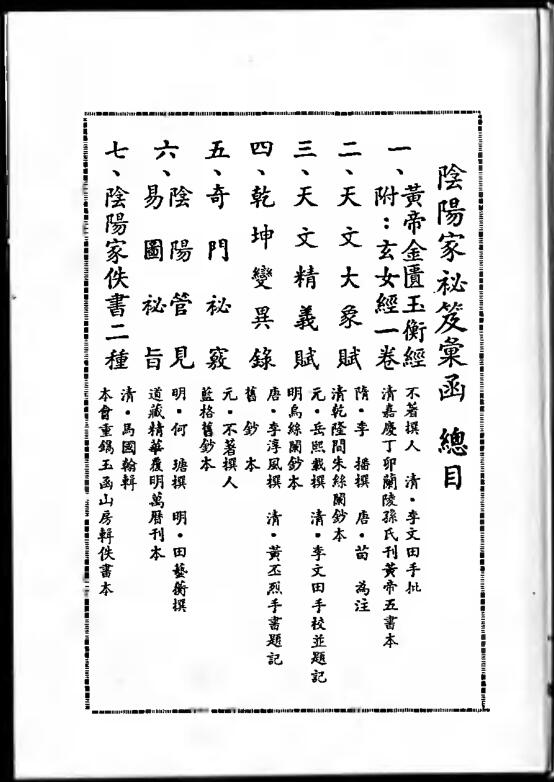 陰陽家祕笈彙函　總目
一、黃帝金匱玉衡經
附：玄女經一卷
不著撰人　清・李文田手批
清嘉慶丁卯蘭陵孫氏刊黃帝五書本
二、天文大象賦
隋・李　播撰　唐・苗　為注
清乾隆間朱絲闌鈔本
三、天文精義賦
元・岳熙載撰　清・李文田手校並題記
明烏絲闌鈔本
四、乾坤變異錄
唐・李淳風撰　清・黃丕烈手書題記
舊　鈔　本
五、奇門祕竅
元・不著撰人
藍格舊鈔本
六、陰陽管見
易圖祕旨
明・何　瑭撰　明・田藝衡撰
道藏精華覆明萬曆刊本
七、陰陽家佚書二種
清・馬國翰輯
本會重鐫玉函山房輯佚書本